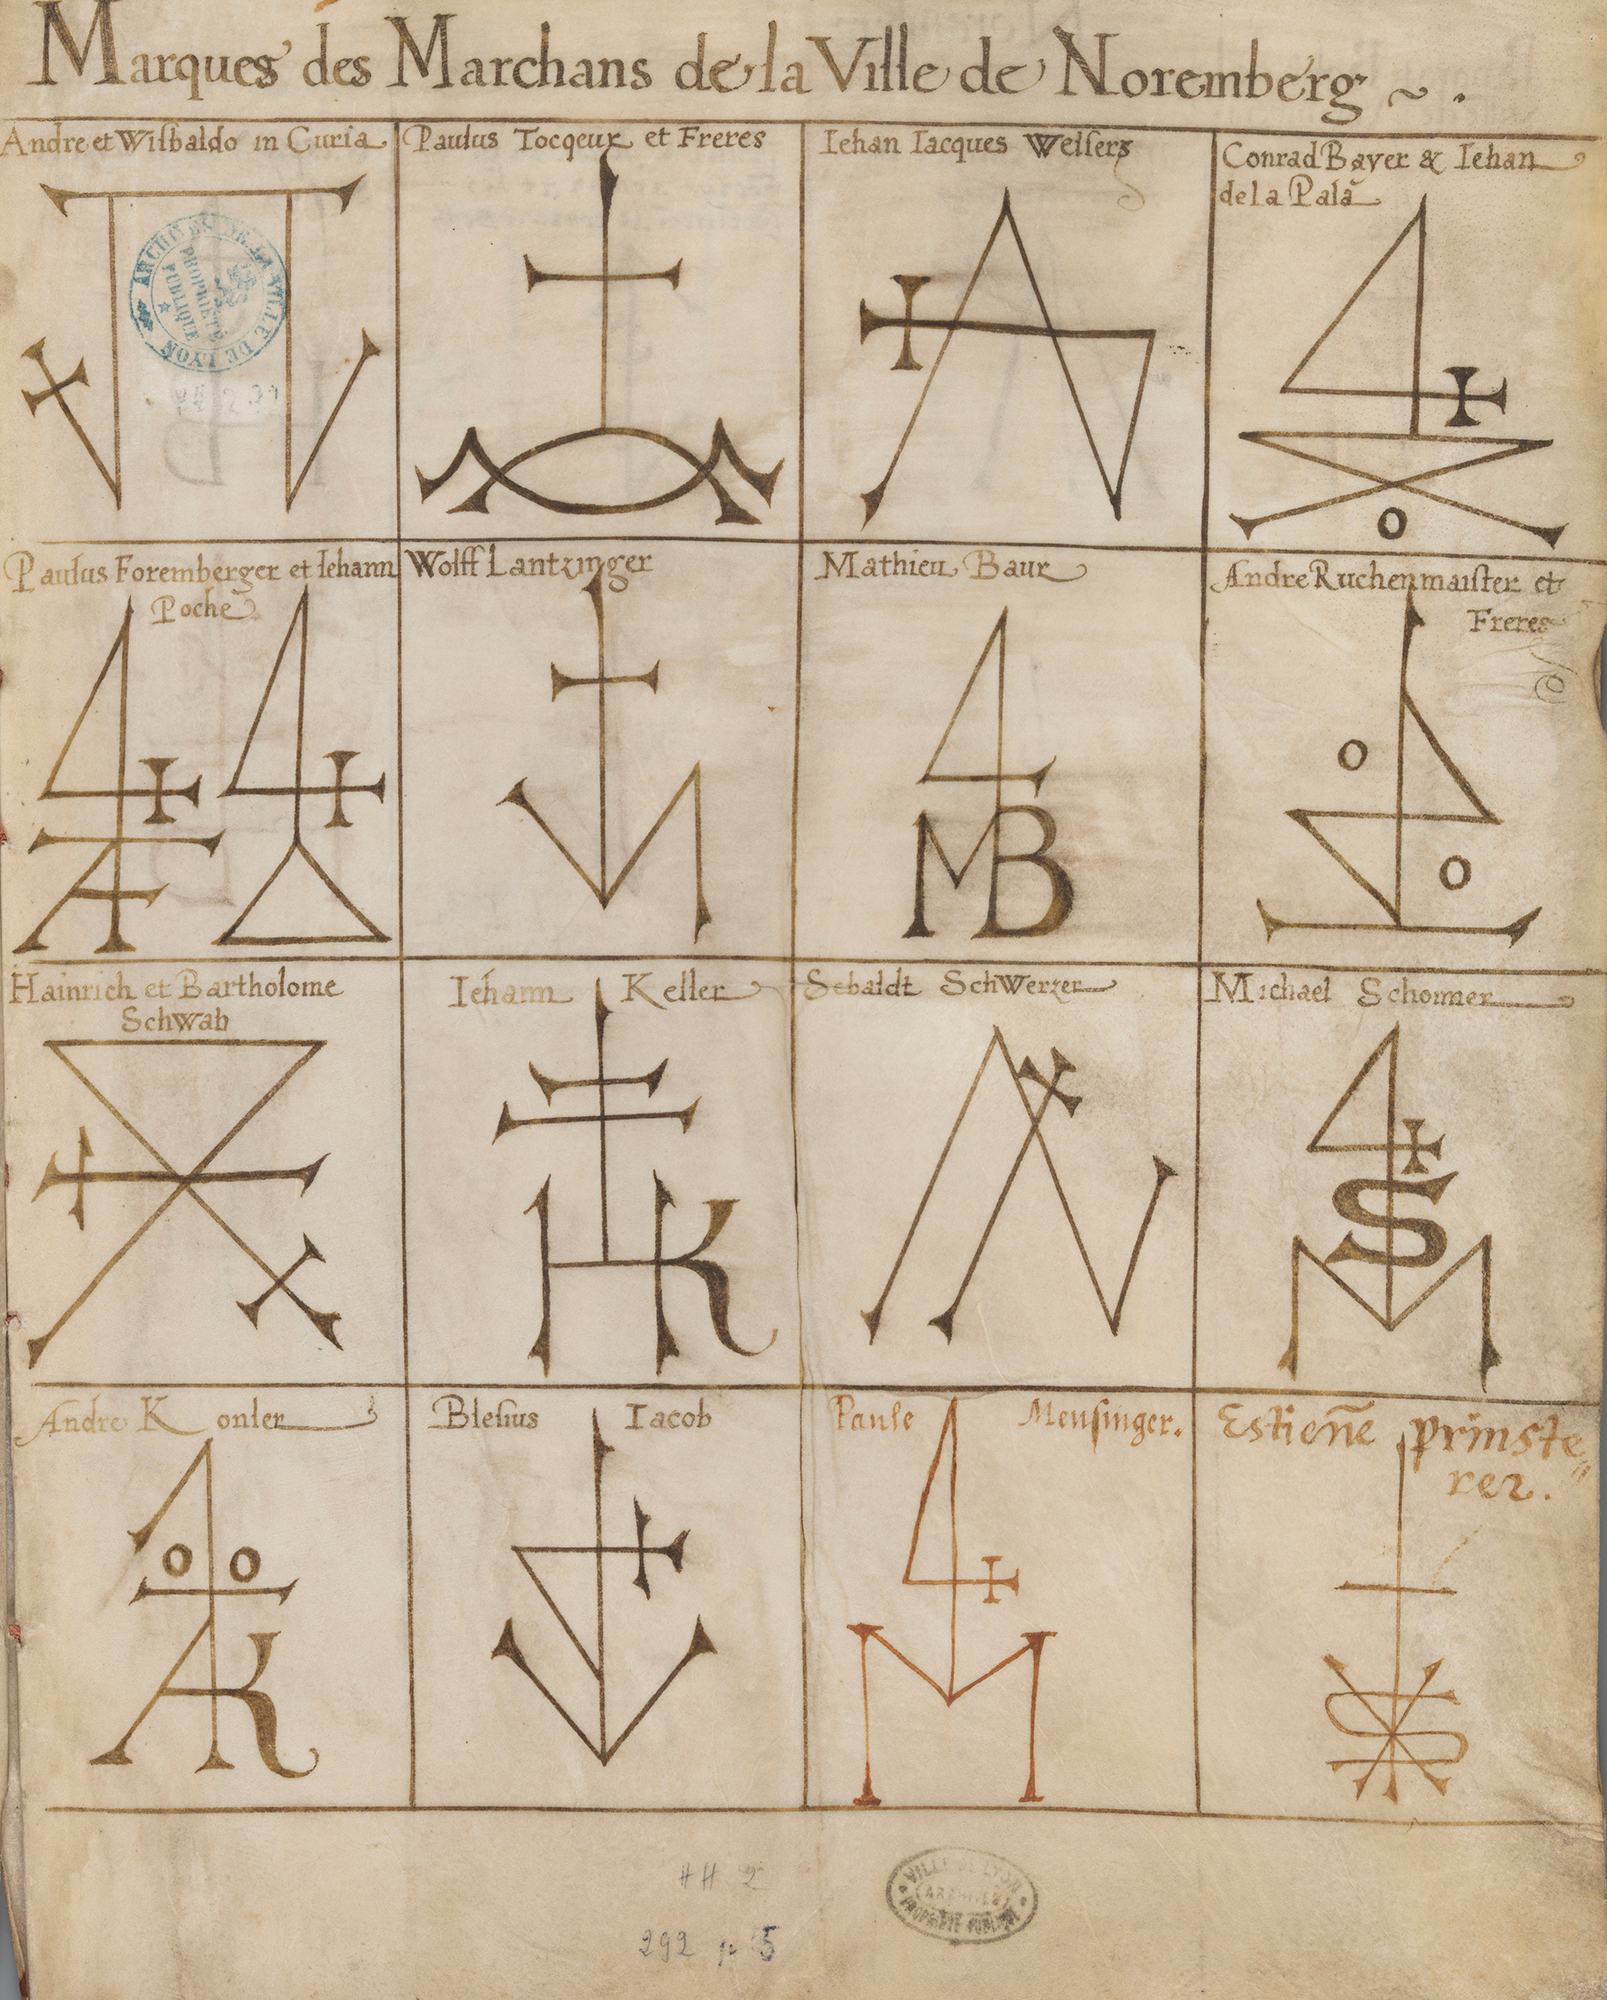 Marques des Marchans de la Ville de Noremberg ~ .
Andre et Wisbaldo in Curia
Paulus Tocqeur et Freres
Iehan Iacques Welsers
Conrad Bayer & Iehan
de la Pala
ARCHIVES DE LA VILLE DE LYON
PROPRIÉTÉ
PUBLIQUE
Paulus Foremberger et Iehann
Poche
Wolff Lantzinger
Mathieu Baur
Andre Ruchenmaister et
Freres
o
MB
o
o
Hainrich et Bartholome
Schwab
Iehann Keller
Sebaldt SchWerzer
Michael Schonner
HK
S
M
Andre Konler
Blesius Iacob
Paule Mensinger.
Estiene prinste
rer.
o o
AK
M
HH 2
292 p 5
VILLE DE LYON
ARCHIVES
PROPRIÉTÉ PUBLIQUE